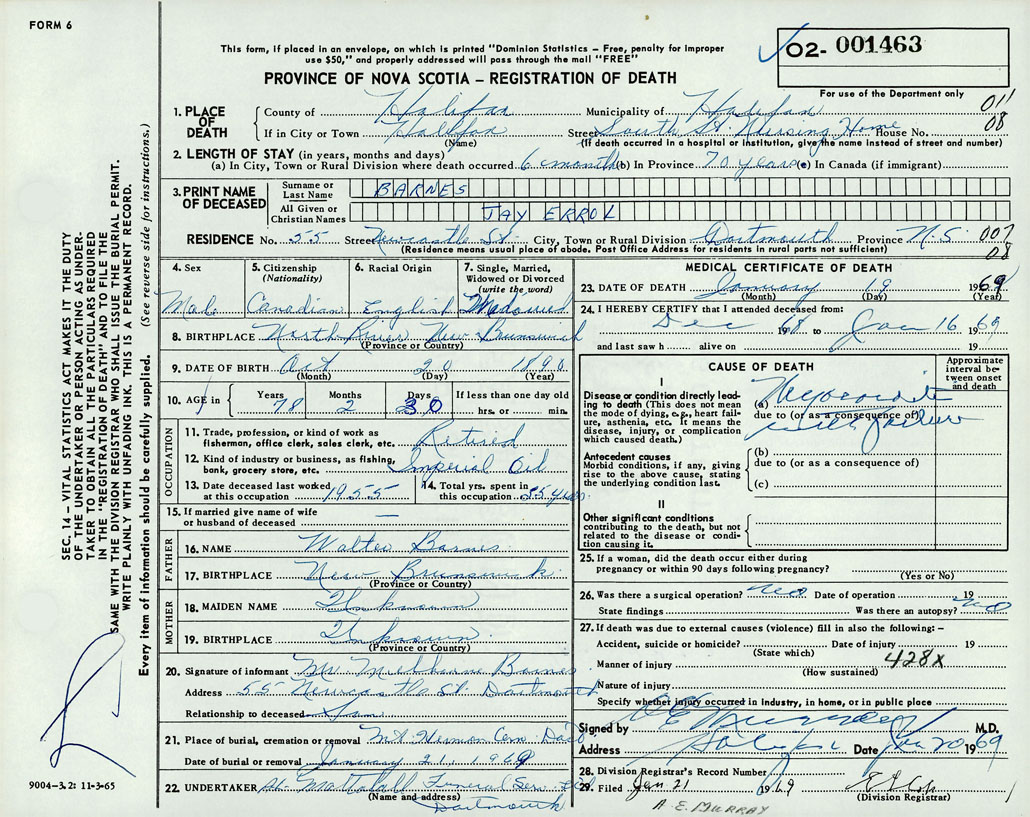 FORM 6
This form, if placed in an envelope, on which is printed "Dominion Statistics – Free, penalty for improper
use $50," and properly addressed will pass through the mail "FREE"
PROVINCE OF NOVA SCOTIA – REGISTRATION OF DEATH
O2- 001463
For use of the Department only
011
08
1. PLACE OF DEATH
County of Halifax Municipality of Halifax
If in City or Town Halifax Street South St. Nursing Home House No.
(Name) (If death occurred in a hospital or institution, give the name instead of street and number)
2. LENGTH OF STAY (in years, months and days)
(a) In City, Town or Rural Division where death occurred 6 months (b) In Province 70 years (c) In Canada (if immigrant)
3. PRINT NAME OF DECEASED
Surname or Last Name BARNES
All Given or Christian Names JAY ERROL
RESIDENCE No. 55 Street Newcastle St. City, Town or Rural Division Dartmouth Province N.S. 007
08
(Residence means usual place of abode. Post Office Address for residents in rural parts not sufficient)
4. Sex
Male
5. Citizenship (Nationality)
Canadian
6. Racial Origin
English
7. Single, Married, Widowed or Divorced (write the word)
Widowed
8. BIRTHPLACE North River New Brunswick
(Province or Country)
9. DATE OF BIRTH Oct 20 1890
(Month) (Day) (Year)
10. AGE in Years 78 Months 2 Days 30 If less than one day old
hrs. or min.
OCCUPATION
11. Trade, profession, or kind of work as fisherman, office clerk, sales clerk, etc. Retired
12. Kind of industry or business, as fishing, bank, grocery store, etc. Imperial Oil
13. Date deceased last worked at this occupation 1955
14. Total yrs. spent in this occupation 35 years
15. If married give name of wife or husband of deceased —
FATHER
16. NAME Walter Barnes
17. BIRTHPLACE New Brunswick
(Province or Country)
MOTHER
18. MAIDEN NAME Unknown
19. BIRTHPLACE Unknown
(Province or Country)
20. Signature of informant Mr Melbourne Barnes
Address 55 Newcastle St. Dartmouth
Relationship to deceased Son
21. Place of burial, cremation or removal Mt Hermon Cem. Dart
Date of burial or removal January 21, 1969
22. UNDERTAKER Mattatall Funeral Ser. Ltd
(Name and address) Dartmouth
MEDICAL CERTIFICATE OF DEATH
23. DATE OF DEATH January 19 1969
(Month) (Day) (Year)
24. I HEREBY CERTIFY that I attended deceased from:
Dec 1968 to Jan 16 1969
and last saw h alive on 19
CAUSE OF DEATH
Approximate interval between onset and death
I
Disease or condition directly leading to death (This does not mean the mode of dying, e.g., heart failure, asthenia, etc. It means the disease, injury, or complication which caused death.)
(a) Myocarditis
due to (or as a consequence of)
with failure
Antecedent causes
Morbid conditions, if any, giving rise to the above cause, stating the underlying condition last.
(b)
due to (or as a consequence of)
(c)
II
Other significant conditions
contributing to the death, but not related to the disease or condition causing it.
25. If a woman, did the death occur either during
pregnancy or within 90 days following pregnancy?
(Yes or No)
26. Was there a surgical operation? No Date of operation 19
State findings Was there an autopsy? No
27. If death was due to external causes (violence) fill in also the following: –
Accident, suicide or homicide? Date of injury 19
(State which)
Manner of injury 428X
(How sustained)
Nature of injury
Specify whether injury occurred in Industry, in home, or in public place
Signed by A E Murray M.D.
Address Halifax Date Jan 20 1969
28. Division Registrar's Record Number
29. Filed Jan 21 1969
(Division Registrar)
A. E. MURRAY
SEC. 14 – VITAL STATISTICS ACT MAKES IT THE DUTY
OF THE UNDERTAKER OR PERSON ACTING AS UNDER-
TAKER TO OBTAIN ALL THE PARTICULARS REQUIRED
IN THE "REGISTRATION OF DEATH" AND TO FILE THE
SAME WITH THE DIVISION REGISTRAR WHO SHALL ISSUE THE BURIAL PERMIT.
WRITE PLAINLY WITH UNFADING INK. THIS IS A PERMANENT RECORD.
Every item of information should be carefully supplied. (See reverse side for instructions.)
9004–3.2: 11-3-65